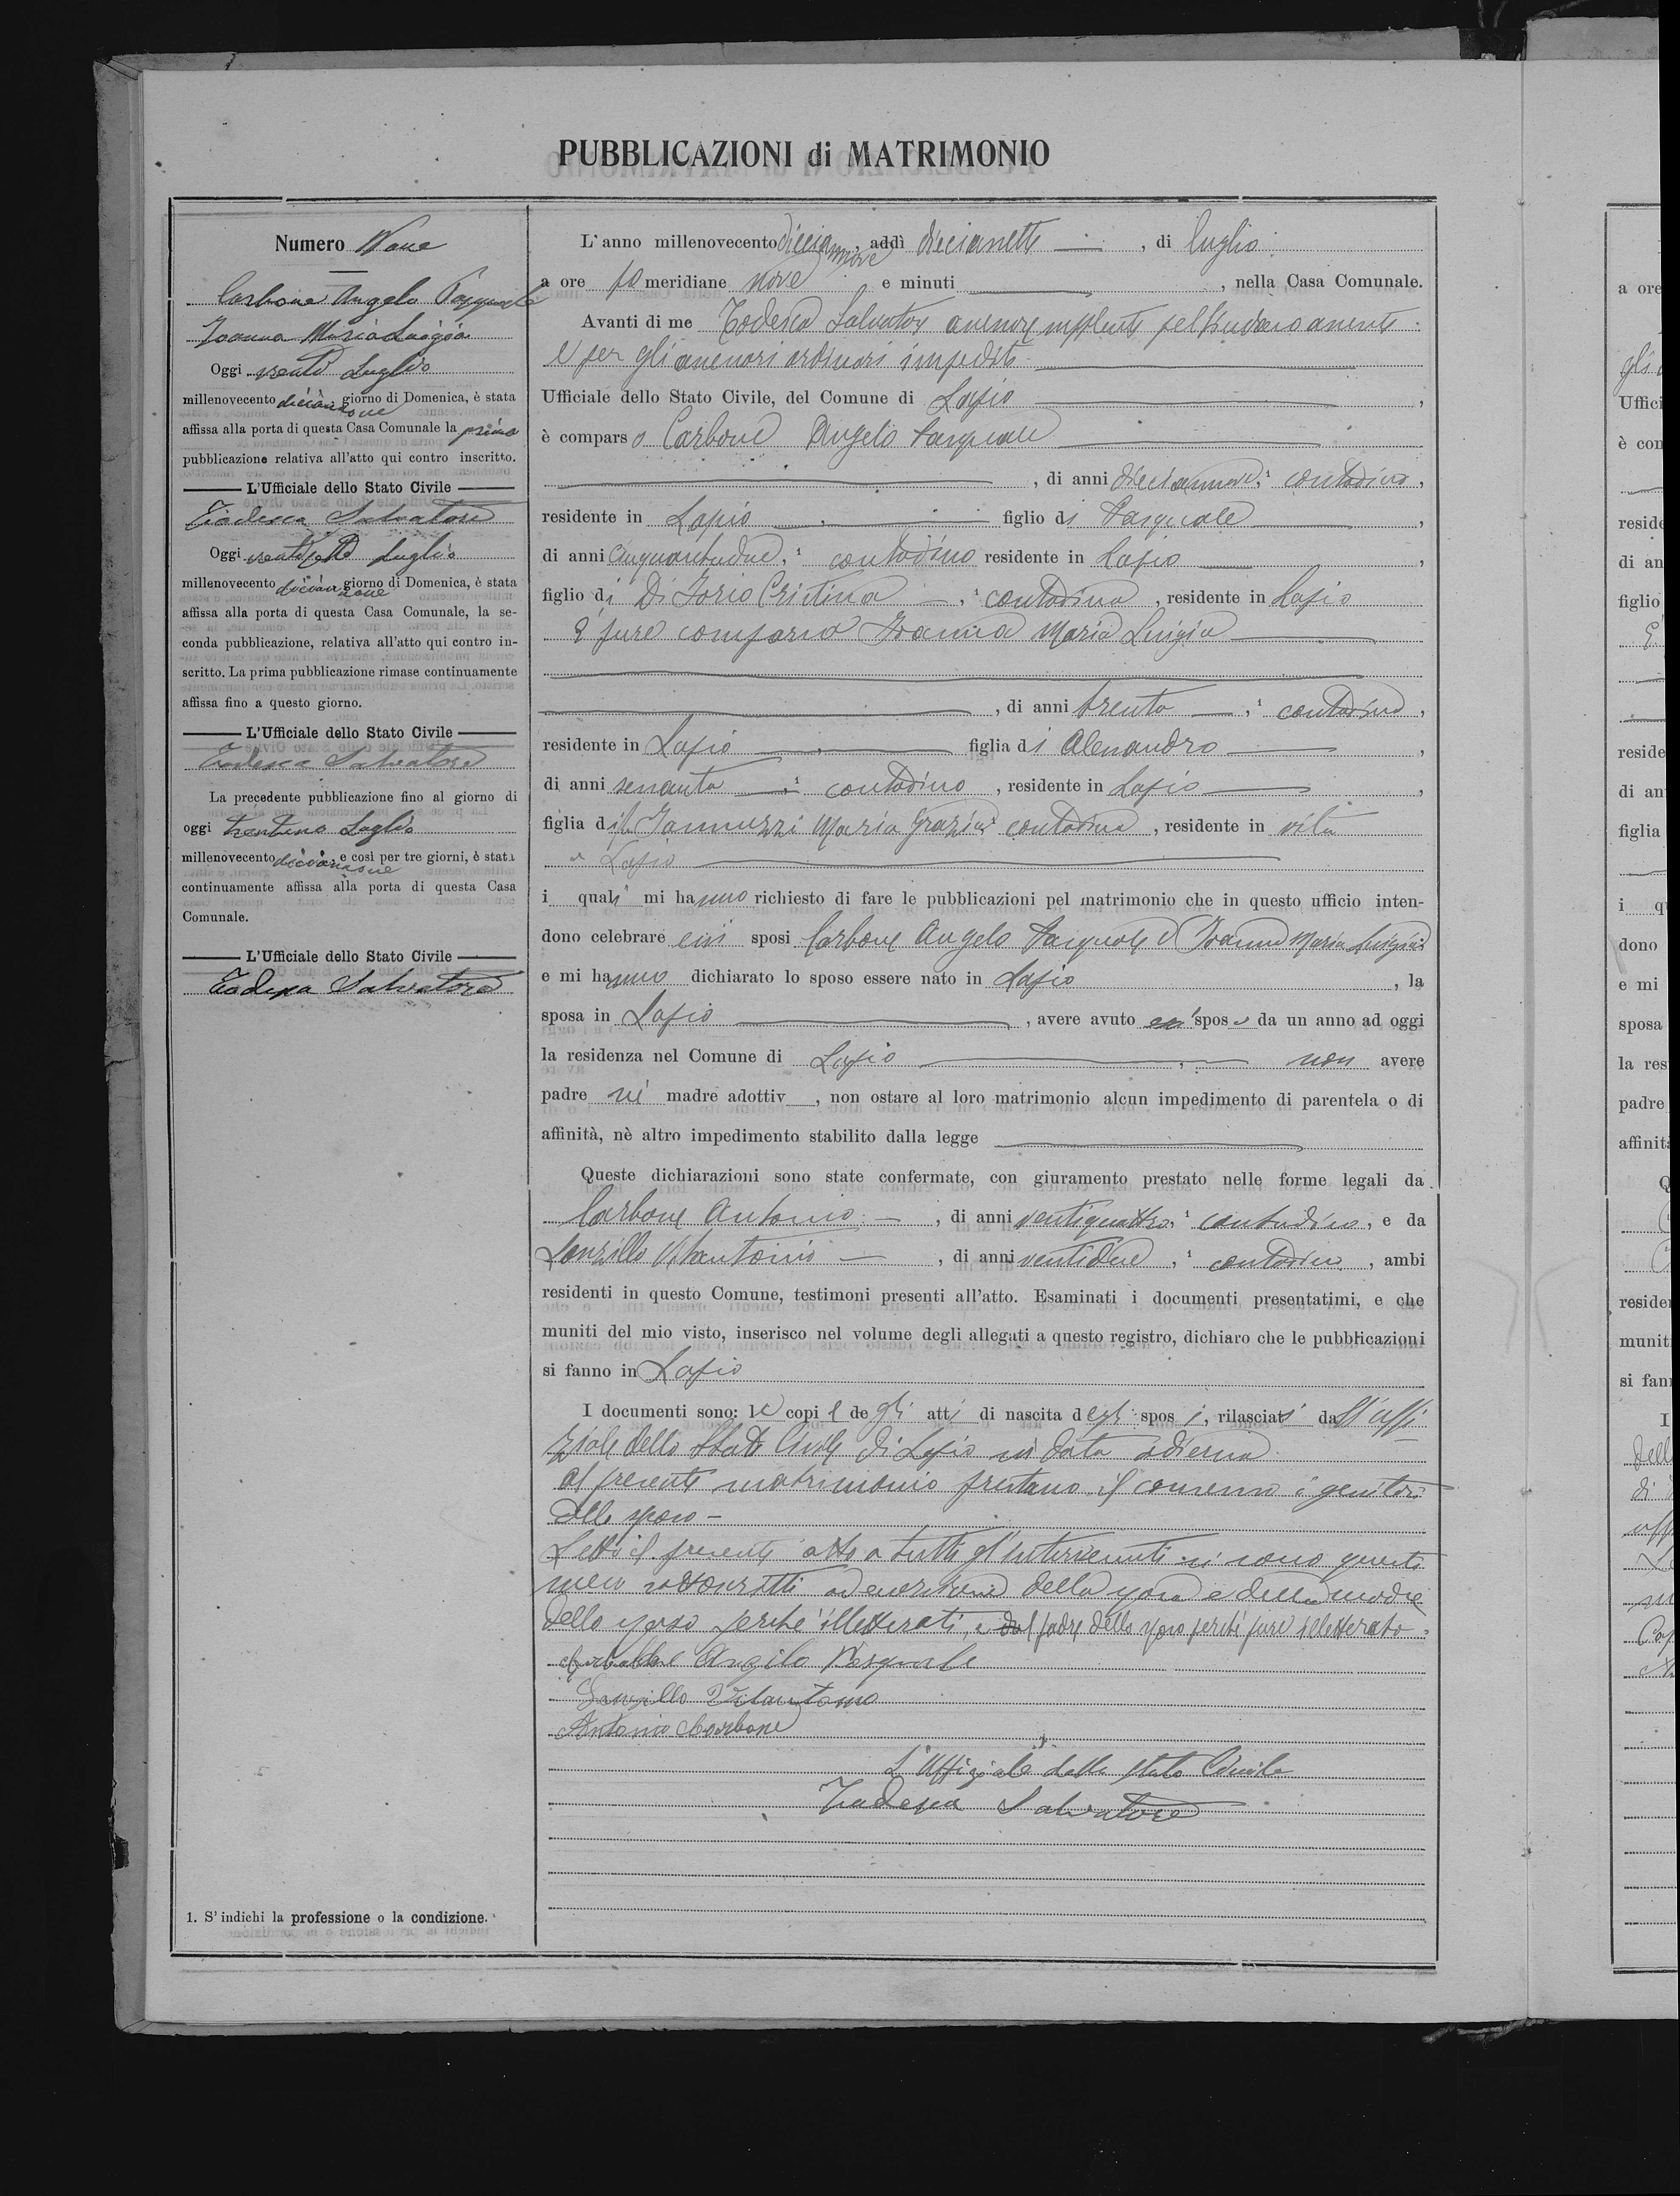 PUBBLICAZIONI di MATRIMONIO
Numero Nove
Carbone Angelo Pasquale
Ioanna Maria Luigia
Oggi venti Luglio
millenovecento diciannove giorno di Domenica, è stata
affissa alla porta di questa Casa Comunale la prima
pubblicazione relativa all'atto qui contro inscritto.
L'Ufficiale dello Stato Civile
Todesca Salvatore
Oggi ventisette Luglio
millenovecento diciannove giorno di Domenica, è stata
affissa alla porta di questa Casa Comunale, la se-
conda pubblicazione, relativa all'atto qui contro in-
scritto. La prima pubblicazione rimase continuamente
affissa fino a questo giorno.
L'Ufficiale dello Stato Civile
Todesca Salvatore
La precedente pubblicazione fino al giorno di
oggi trentuno Luglio
millenovecento diciannove e così per tre giorni, è stata
continuamente affissa alla porta di questa Casa
Comunale.
L'Ufficiale dello Stato Civile
Todesca Salvatore
1. S'indichi la professione o la condizione.
L'anno millenovecento diciannove, addì diecisette, di luglio
a ore po meridiane nove e minuti , nella Casa Comunale.
Avanti di me Todesca Salvatore assessore supplente pel Sindaco assente
e per gli assessori ordinari impediti
Ufficiale dello Stato Civile, del Comune di Lapio ,
è comparso Carbone Angelo Pasquale
, di anni diecianove, ¹ contadino,
residente in Lapio figlio di Pasquale ,
di anni cinquantadue, ¹ contadino residente in Lapio ,
figlio di Di Iorio Cristina, ¹ contadina, residente in Lapio
È pure comparsa Ioanna Maria Luigia
, di anni trenta, ¹ contadina,
residente in Lapio figlia di Alessandro ,
di anni sessanta, ¹ contadino, residente in Lapio ,
figlia di fu Iannuzzi Maria Grazia ¹ contadina, residente in vita
a Lapio
i quali mi hanno richiesto di fare le pubblicazioni pel matrimonio che in questo ufficio inten-
dono celebrare essi sposi Carbone Angelo Pasquale e Ioanna Maria Luigia
e mi hanno dichiarato lo sposo essere nato in Lapio , la
sposa in Lapio , avere avuto essi sposi da un anno ad oggi
la residenza nel Comune di Lapio , non avere
padre nè madre adottiv , non ostare al loro matrimonio alcun impedimento di parentela o di
affinità, nè altro impedimento stabilito dalla legge
Queste dichiarazioni sono state confermate, con giuramento prestato nelle forme legali da
Carbone Antonio , di anni ventiquattro, ¹ contadino, e da
Vitantonio , di anni ventidue, ¹ contadino, ambi
residenti in questo Comune, testimoni presenti all'atto. Esaminati i documenti presentatimi, e che
muniti del mio visto, inserisco nel volume degli allegati a questo registro, dichiaro che le pubblicazioni
si fanno in Lapio
I documenti sono: le copie degli atti di nascita degli sposi, rilasciati dall'uffi
ziale dello Stato Civile di Lapio in data odierna
Al presente matrimonio prestano il consenso i genitori
dello sposo -
Letto il presente atto a tutti gl'intervenuti si sono questi
meco sottoscritti ad eccezione della sposa e della madre
dello sposo perchè illetterati, e dal padre dello sposo perchè pure illetterato.
Carbone Angilo Pasquale
Vitantonio
Antonio Carbone
L'Uffiziale dello Stato Civile
Todesca Salvatore
a ore
gli
Uffici
è con
reside
di an
figlio
reside
di an
figlia
i q
dono
e mi
sposa
la res
padre
affinit
Q
reside
munit
si fan
I